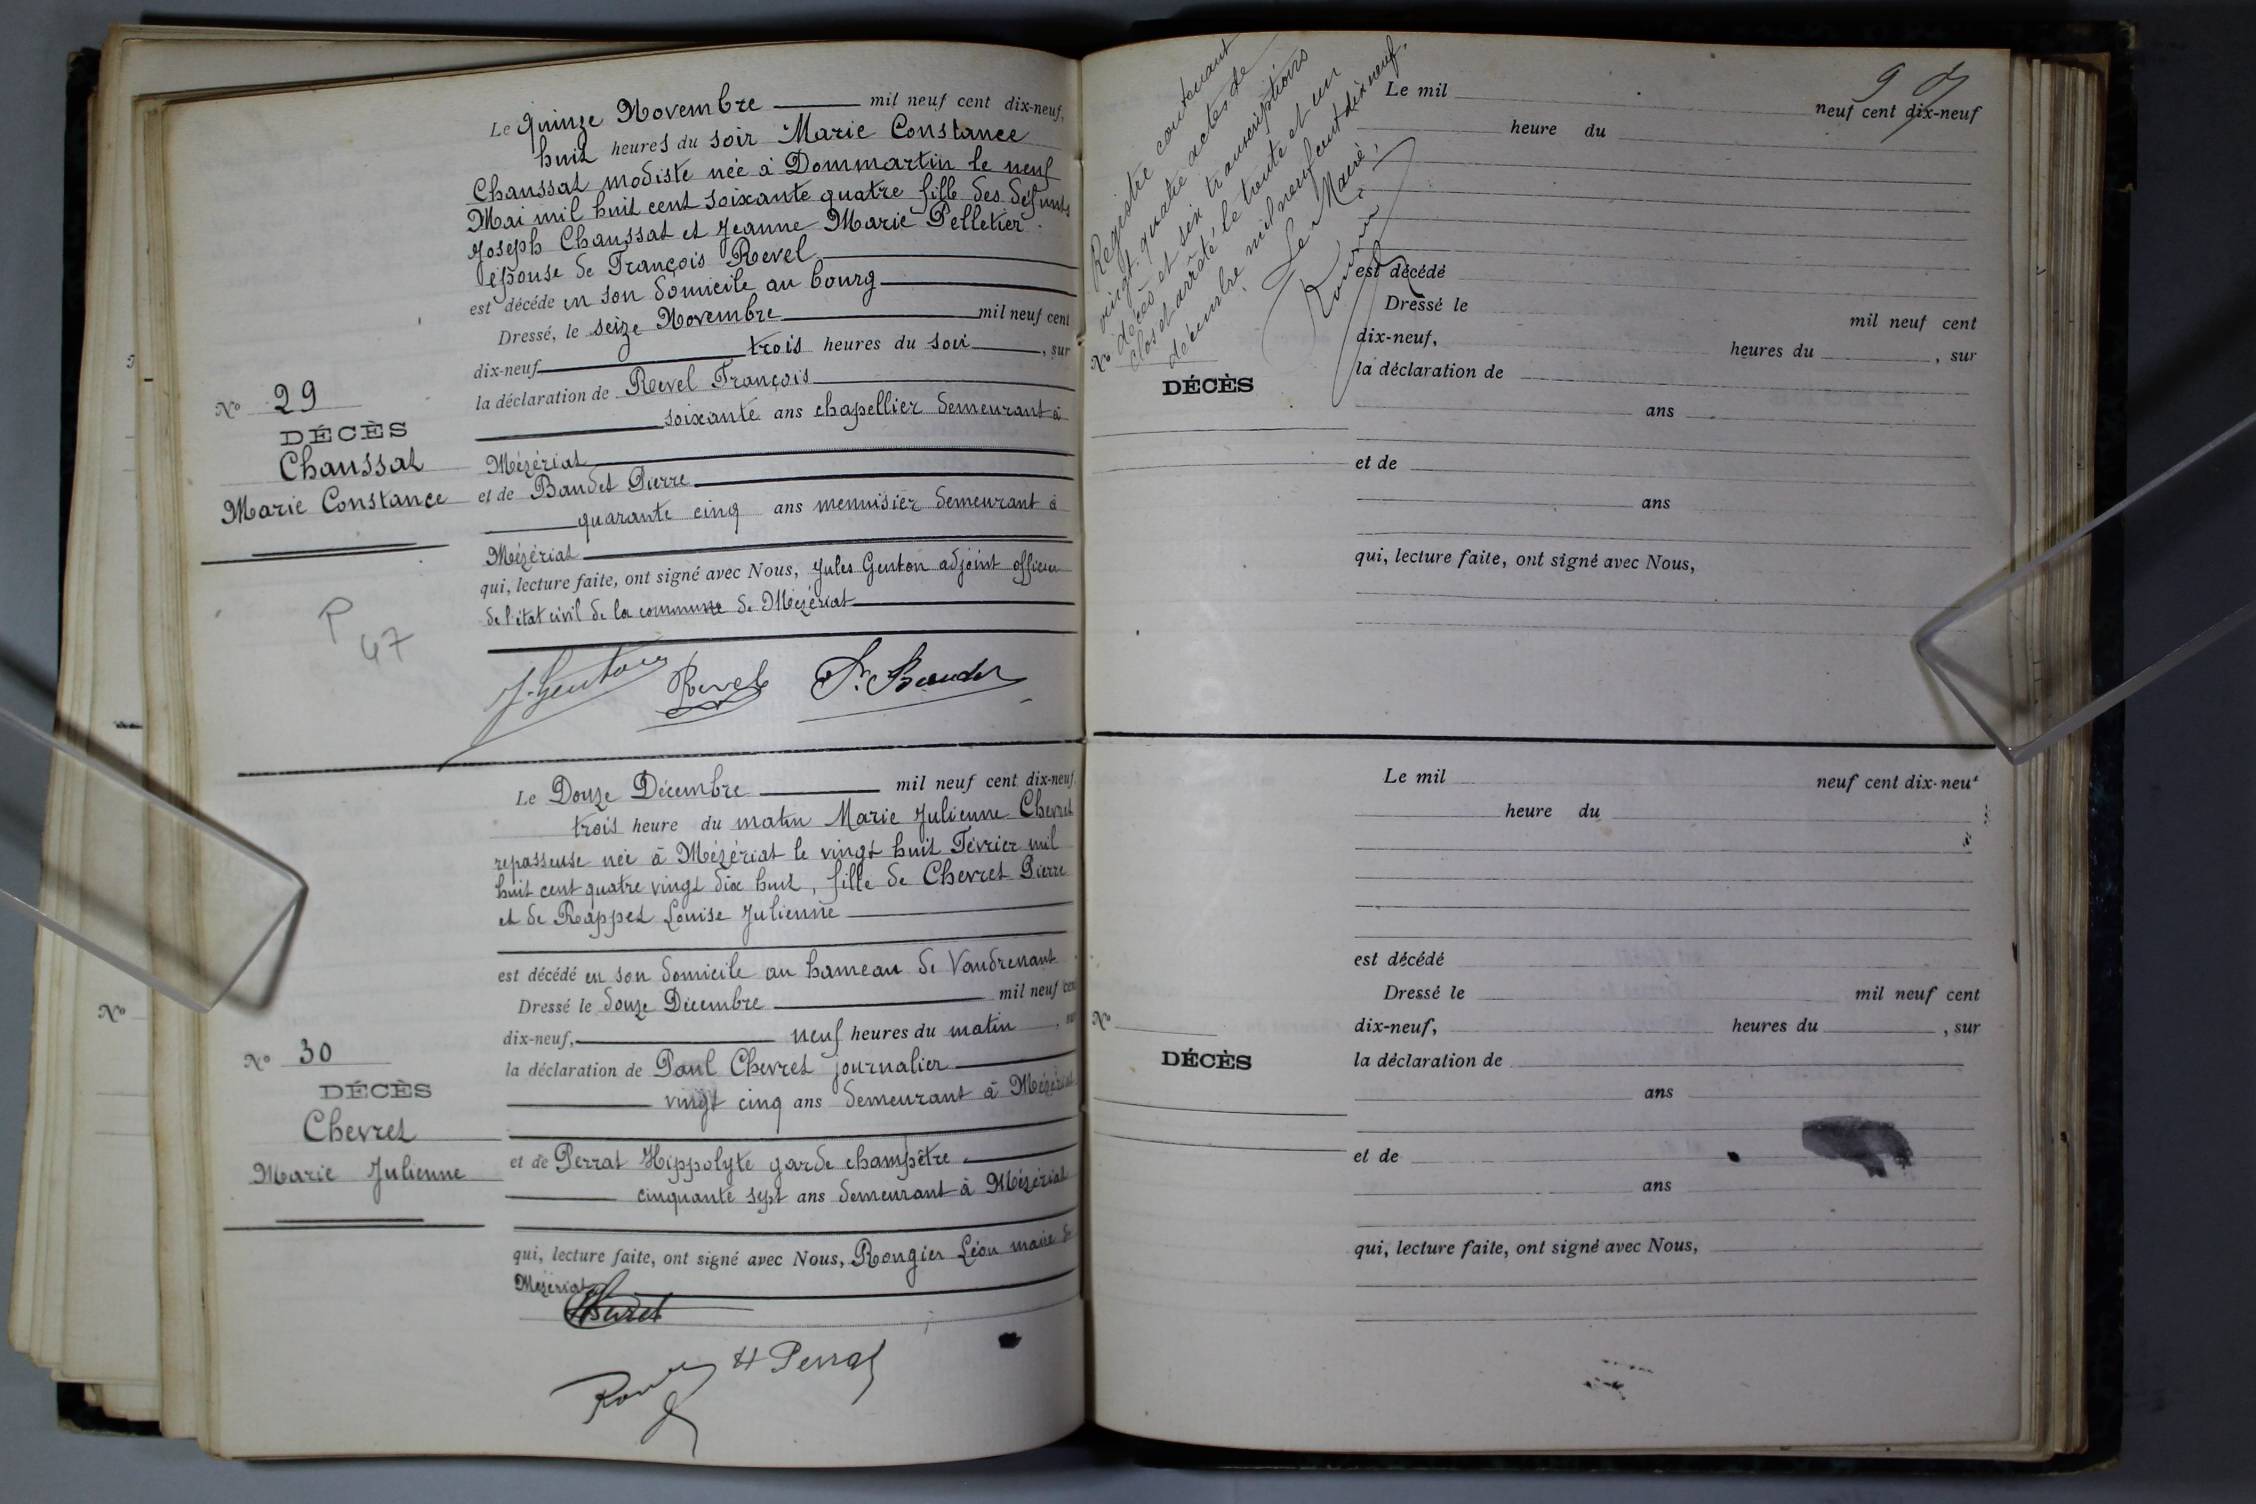 Le quinze Novembre mil neuf cent dix-neuf,
huit heures du soir Marie Constance
Chaussat modiste née à Dommartin le neuf
Mai mil huit cent soixante quatre fille des défunts
Joseph Chaussat et Jeanne Marie Pelletier
épouse de François Revel
est décédé en son domicile au bourg
Dressé, le seize Novembre mil neuf cent
dix-neuf trois heures du soir, sur
la déclaration de Revel François
soixante ans chapellier demeurant à
Mézériat
et de Baudet Pierre
quarante cinq ans menuisier demeurant à
Mézériat
qui, lecture faite, ont signé avec Nous, Jules Genton adjoint officier
de l'état civil de la commune de Mézériat
J. Genton Revel P. Baudet
No 29
DÉCÈS
Chaussat
Marie Constance
P
47
Le Douze Décembre mil neuf cent dix-neuf
trois heure du matin Marie Julienne Chevret
repasseuse née à Mézériat le vingt huit Février mil
huit cent quatre vingt dix huit, fille de Chevret Pierre
et de Rappet Louise Julienne
est décédé en son domicile au hameau de Vaudrenant
Dressé le douze Décembre mil neuf cent
dix-neuf, neuf heures du matin, sur
la déclaration de Paul Chevret journalier
vingt cinq ans demeurant à Mézériat
et de Perrat Hippolyte garde champêtre
cinquante sept ans demeurant à Mézériat
qui, lecture faite, ont signé avec Nous, Rougier Léon maire de
Mézériat
Chevret
H Perrat
No
No 30
DÉCÈS
Chevret
Marie Julienne
Registre contenant
vingt quatre actes de
décès et six transcriptions
clos et arrêté le trente et un
décembre mil neuf cent dix neuf.
Le Maire,
9
Le mil neuf cent dix-neuf
heure du
est décédé
Dressé le mil neuf cent
dix-neuf, heures du , sur
la déclaration de
ans
et de
ans
qui, lecture faite, ont signé avec Nous,
No
DÉCÈS
Le mil neuf cent dix-neuf
heure du
est décédé
Dressé le mil neuf cent
dix-neuf, heures du , sur
la déclaration de
ans
et de
ans
qui, lecture faite, ont signé avec Nous,
No
DÉCÈS